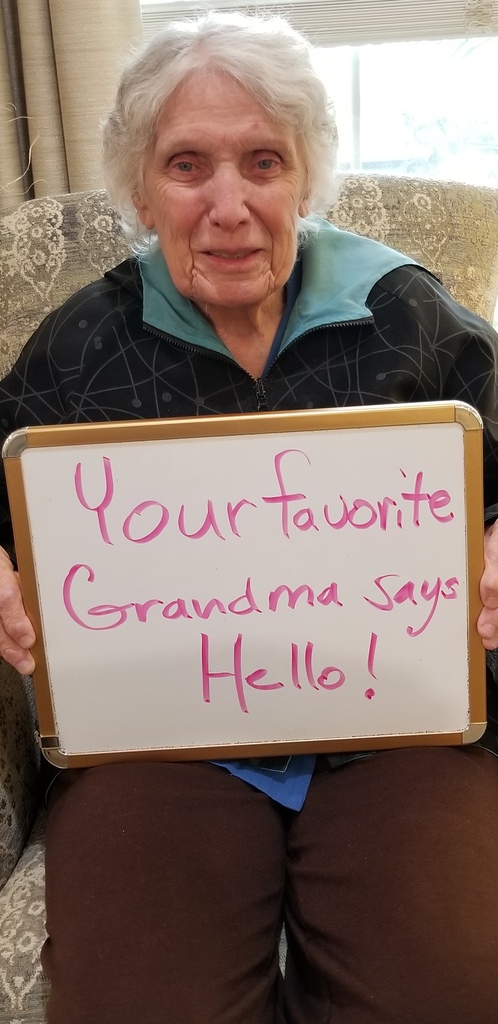 Your favorite
Grandma says
Hello!